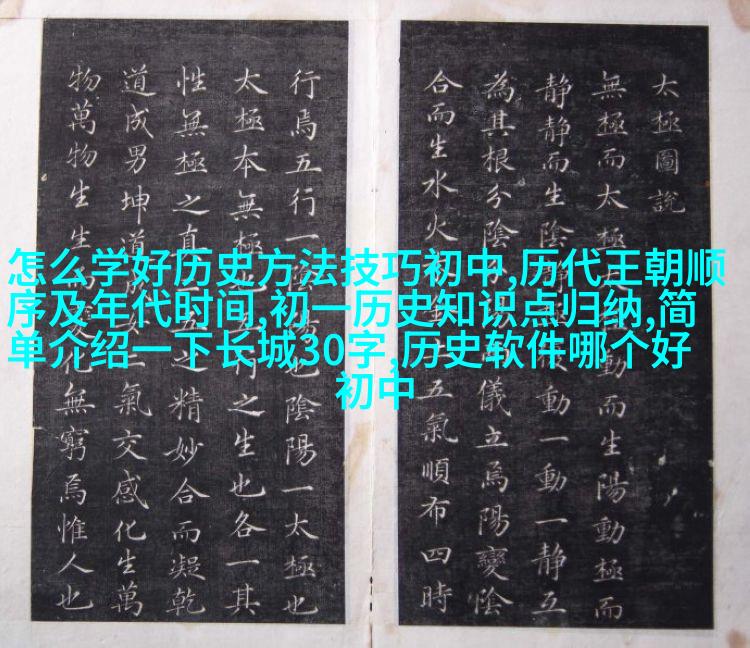 怎么学好历史方法技巧初中,历代王朝顺
序及年代时间,初一历史知识点归纳,简
单介绍一下长城30字,历史软件哪个好
初中
太極圖說
無極而太極動而生陽動極而
静静而生陰静動一動一静互
為其根分陰分儀立焉陽變陰
合而生水火五氣順布四時
行焉五行一陰陽也陰陽一太極也
太極本無極也之生也各一其
性無極之真二五之精妙合而凝乾
道成男坤道二氣交感化生萬
物萬物生生化無窮焉惟人也